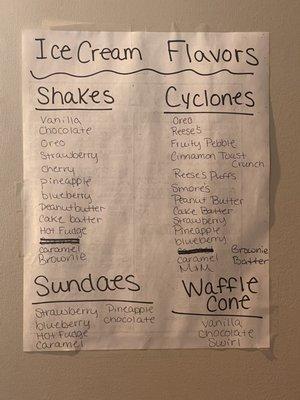 Ice Cream Flavors
Shakes
Vanilla
Chocolate
Oreo
Strawberry
Cherry
Pineapple
blueberry
Peanutbutter
Cake batter
Hot Fudge
caramel
Brownie
Cyclones
Oreo
Reese's
Fruity Pebble
Cinnamon Toast
Crunch
Reese's Puffs
Smores
Peanut Butter
Cake Batter
Strawberry
Pineapple
blueberry
caramel
M&M
Brownie
Batter
Sundaes
Strawberry
blueberry
Hot Fudge
Caramel
Pineapple
chocolate
Waffle
Cone
vanilla
Chocolate
Swirl